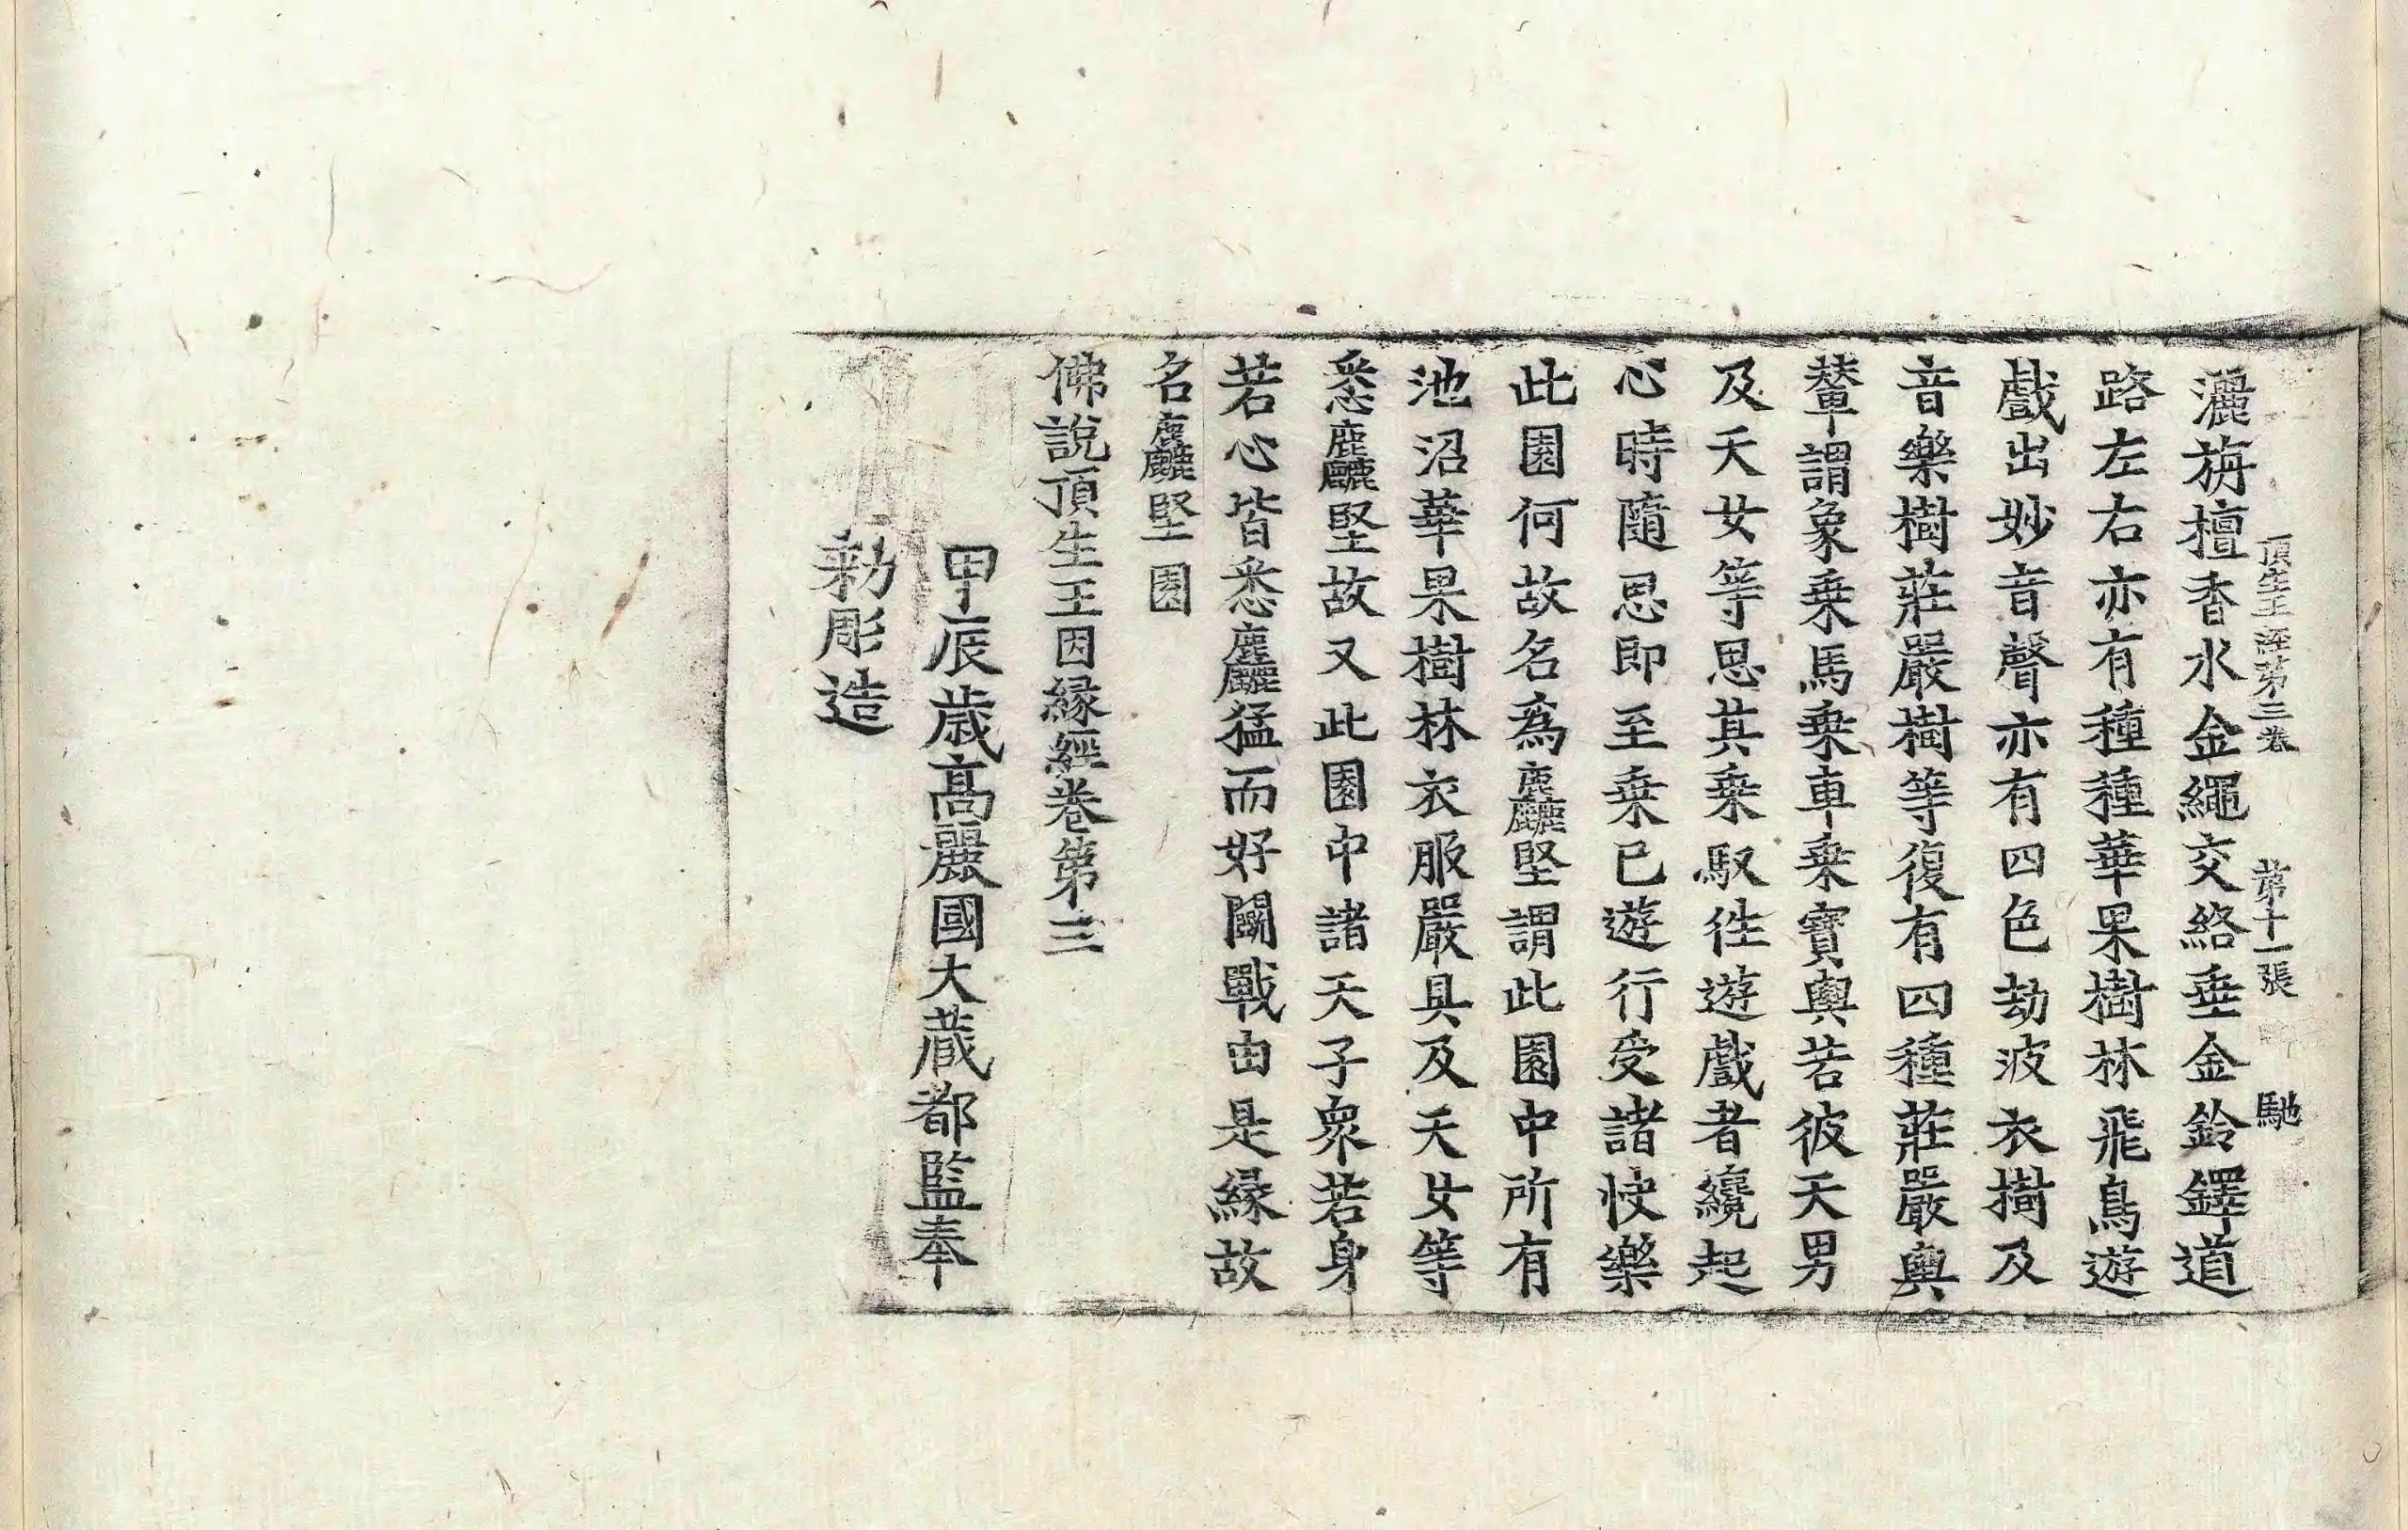 頂生王經第三卷 第十一張 馳
灑旃檀香水金繩交絡垂金鈴鐸道
路左右亦有種種華果樹林飛鳥遊
戲出妙音聲亦有四色劫波衣樹及
音樂樹莊嚴樹等復有四種莊嚴輿
輦謂象乗馬乗車乗寶輿若彼天男
及天女等思其乗馭徃遊戲者纔起
心時隨思即至乗已遊行受諸快樂
此園何故名爲麁麤堅謂此園中所有
池沼華果樹林衣服嚴具及天女等
悉麁麤堅故又此園中諸天子衆若身
若心皆悉麁麤猛而好鬭戰由是緣故
名麁麤堅園
佛說頂生王因緣經卷第三
甲辰歳髙麗國大藏都監奉
勑彫造